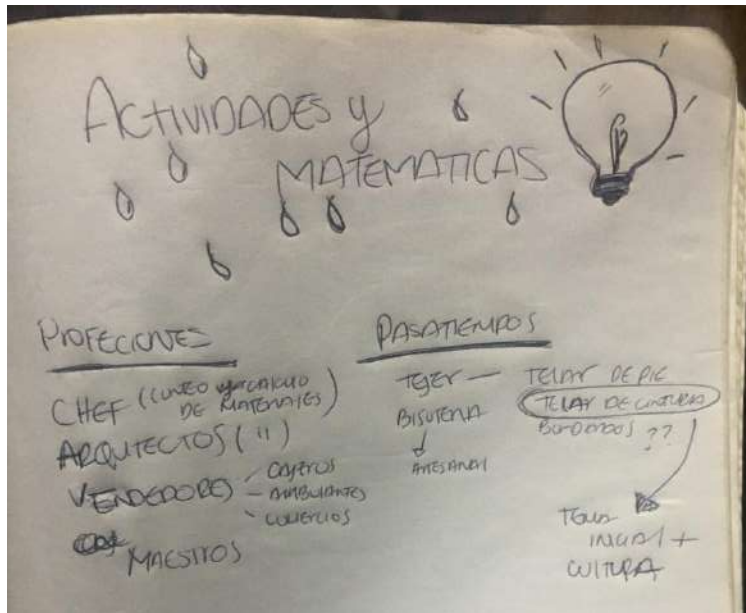 ACTIVIDADES y
MATEMATICAS
PROFECIONES
CHEF (CONTEO y CALCULO
DE MATERIALES)
ARQUITECTOS (")
VENDEDORES
CAJEROS
AMBULANTES
COMERCIOS
MAESTROS
PASATIEMPOS
TEJER — TELAR DE PIE
TELAR DE CINTURA
BORDADOS ??
BISUTERIA
ARTESANAL
TEMA
INICIAL +
CULTURA